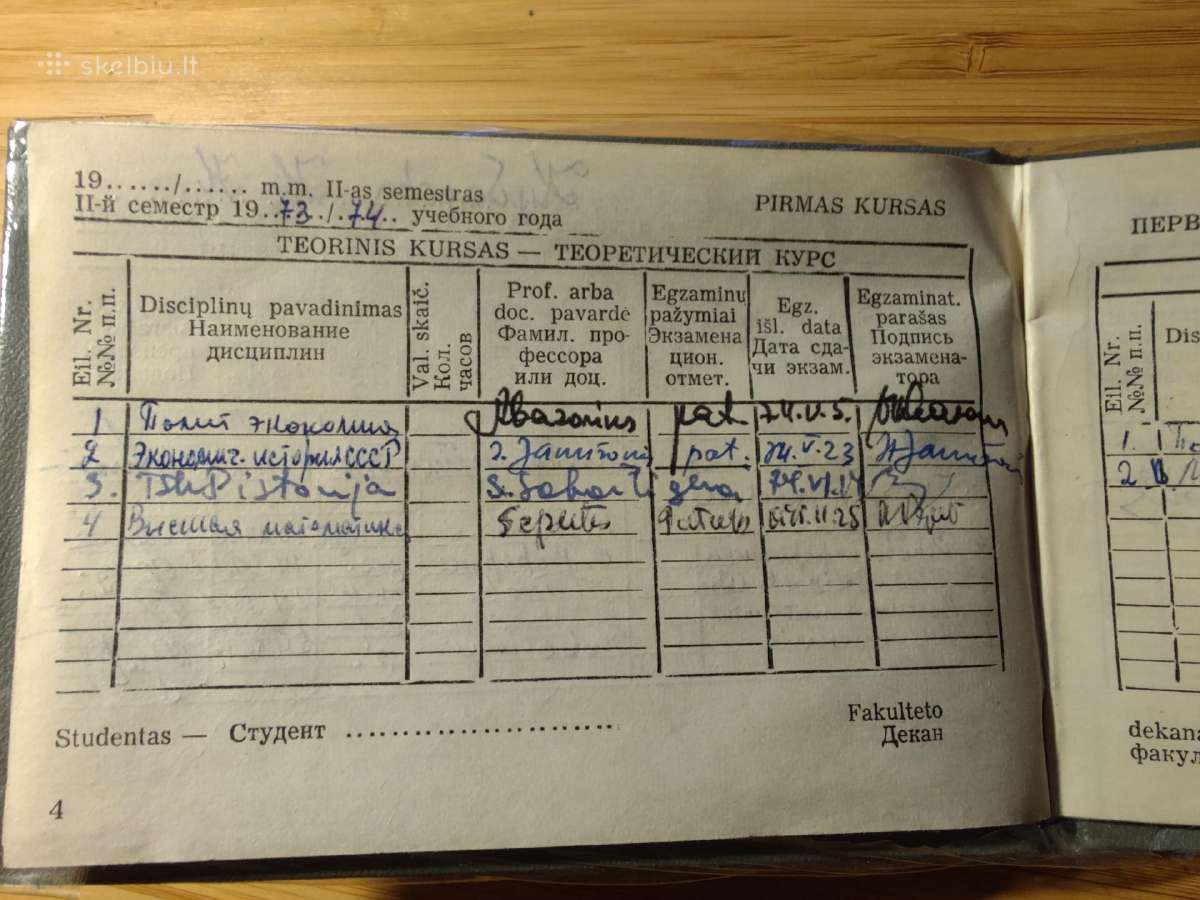 skelbiu.lt
19....../...... m.m. II-as semestras
II-й семестр 19..73../.74.. учебного года
PIRMAS KURSAS
TEORINIS KURSAS — ТЕОРЕТИЧЕСКИЙ КУРС
Eil. Nr.
№№ п.п.
Disciplinų pavadinimas
Наименование
дисциплин
Val. skaič.
Кол.
часов
Prof. arba
doc. pavardė
Фамил. про-
фессора
или доц.
Egzaminų
pažymiai
Экзамена
цион.
отмет.
Egz.
išl. data
Дата сда-
чи экзам.
Egzaminat.
parašas
Подпись
экзамена-
тора
1 Полит экономия pat 74.V.5.
2 Экономич. история СССР pat. 74.V.23
3. TSKP istorija gera
4 Высшая математика
Studentas — Студент
Fakulteto
Декан
4
ПЕРВ
Eil. Nr.
№№ п.п.
Dis
1.
2
dekana
факул